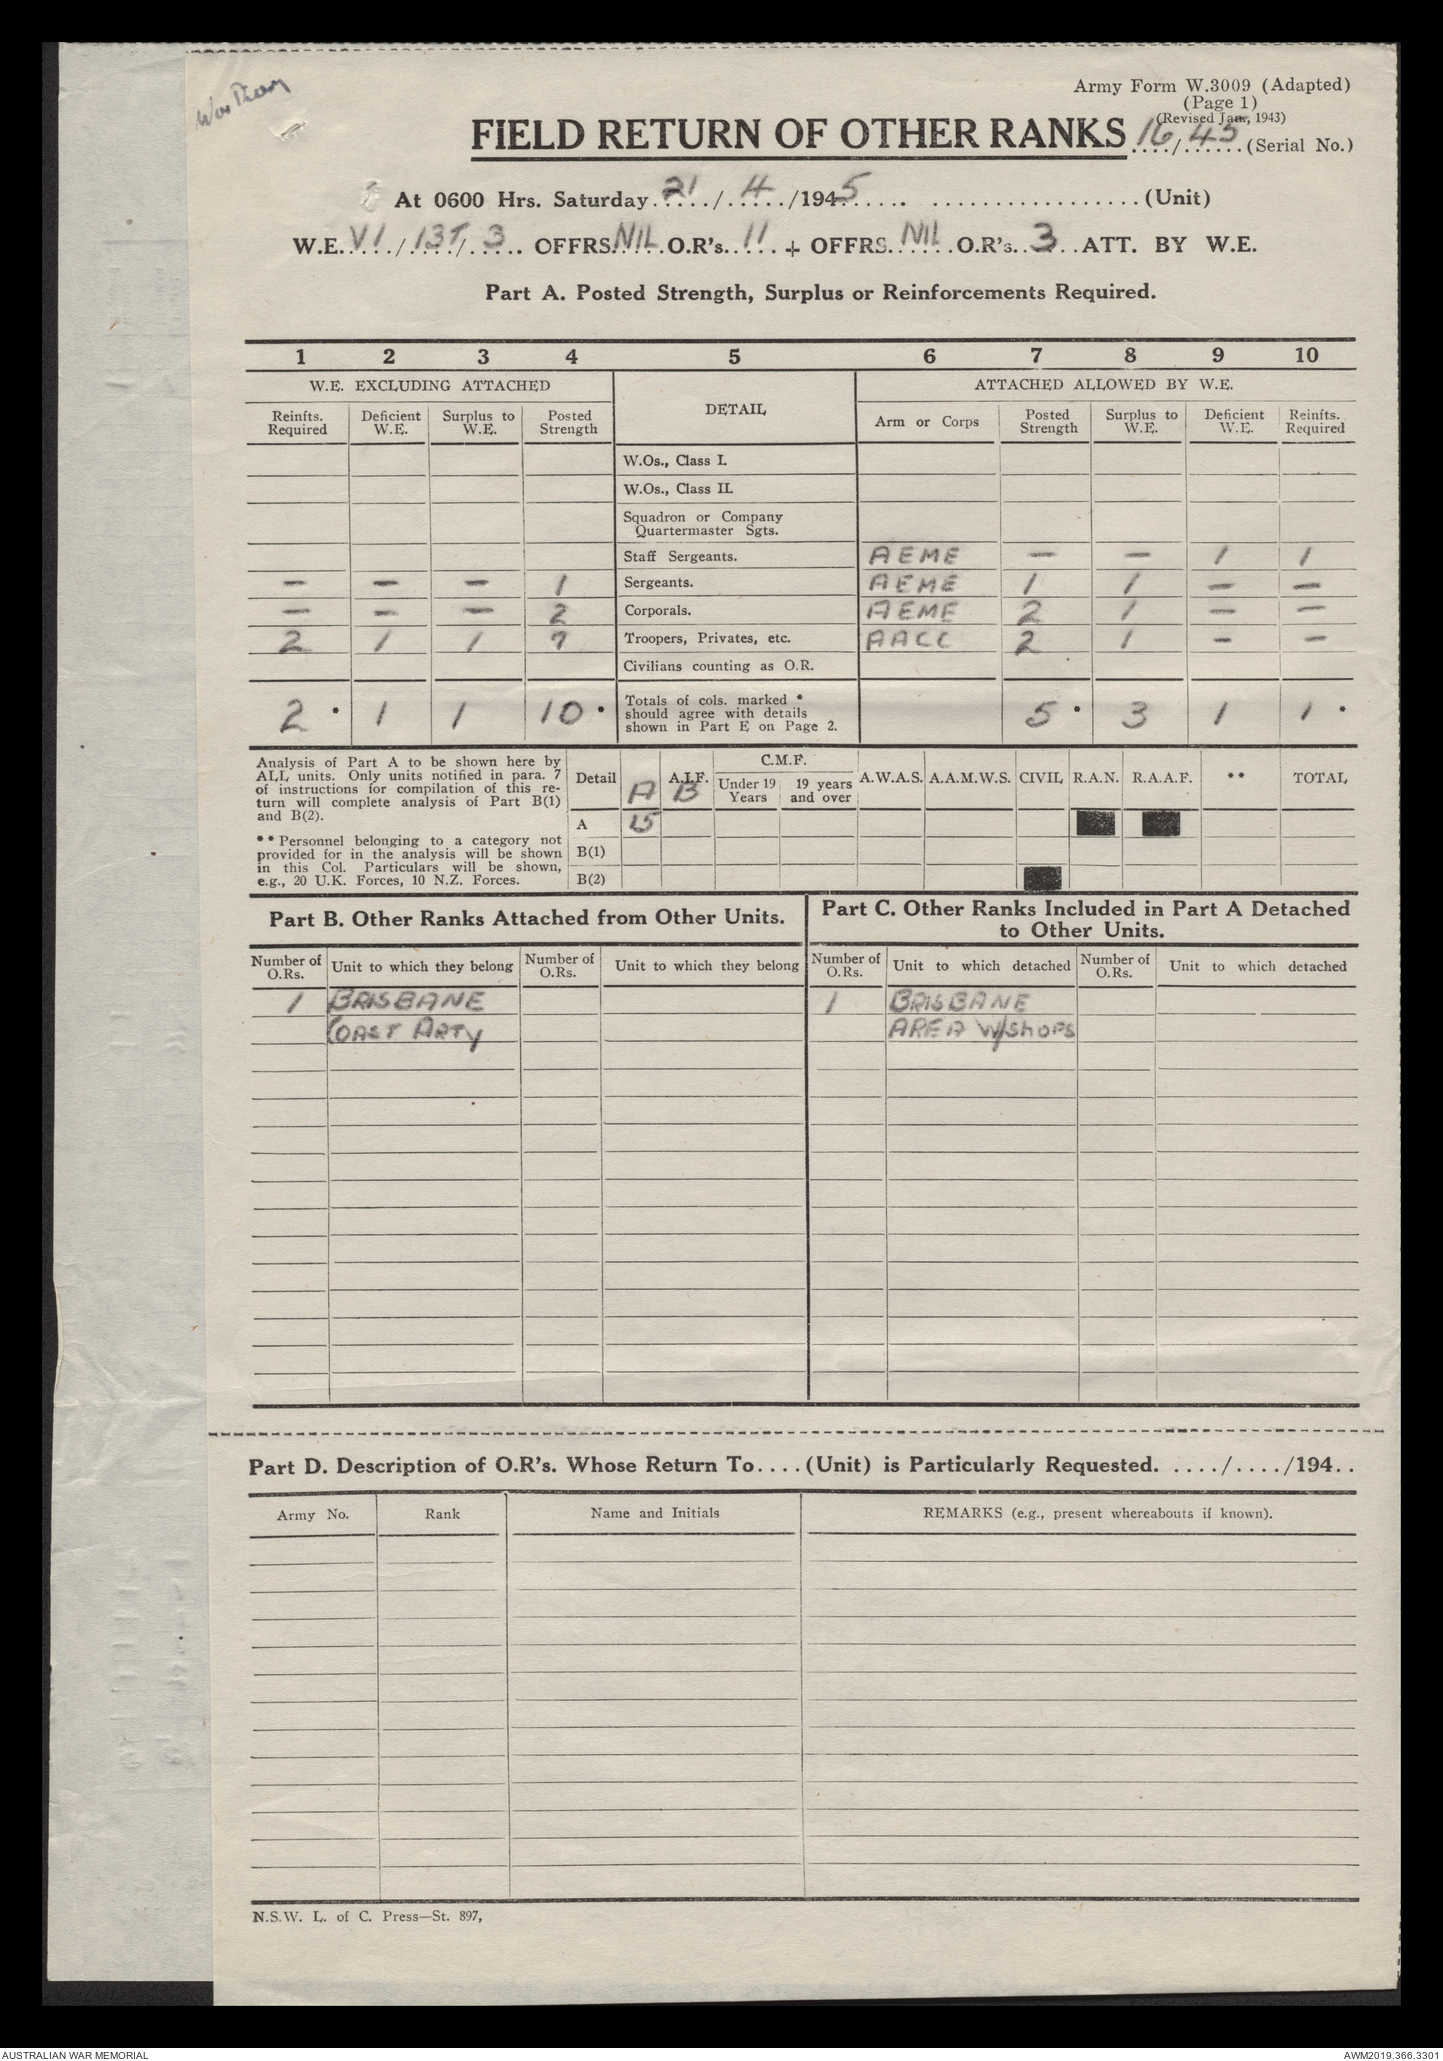 Army Form W.3009 (Adapted)
(Page 1)
(Revised Jan., 1943)
FIELD RETURN OF OTHER RANKS 16/45 (Serial No.)
At 0600 Hrs. Saturday 21/4/1945 .................. (Unit)
W.E. VI/13T/3 OFFRS. NIL O.R's. 11 + OFFRS. NIL O.R's. 3 ATT. BY W.E.
Part A. Posted Strength, Surplus or Reinforcements Required.
1 2 3 4 5 6 7 8 9 10
W.E. EXCLUDING ATTACHED DETAIL ATTACHED ALLOWED BY W.E.
Reinfts. Required Deficient W.E. Surplus to W.E. Posted Strength Arm or Corps Posted Strength Surplus to W.E. Deficient W.E. Reinfts. Required
W.Os., Class I.
W.Os., Class II.
Squadron or Company
Quartermaster Sgts.
Staff Sergeants. AEME — — 1 1
— — — 1 Sergeants. AEME 1 1 — —
— — — 2 Corporals. AEME 2 1 — —
2 1 1 7 Troopers, Privates, etc. AACC 2 1 - -
Civilians counting as O.R.
Totals of cols. marked *
2 * 1 1 10 * should agree with details 5 * 3 1 1 *
shown in Part E on Page 2.
Analysis of Part A to be shown here by
ALL units. Only units notified in para. 7
of instructions for compilation of this re-
turn will complete analysis of Part B(1)
and B(2).
** Personnel belonging to a category not
provided for in the analysis will be shown
in this Col. Particulars will be shown,
e.g., 20 U.K. Forces, 10 N.Z. Forces.
Detail A A.I.F. B C.M.F. Under 19 Years 19 years and over A.W.A.S. A.A.M.W.S. CIVIL R.A.N. R.A.A.F. ** TOTAL
A 15
B(1)
B(2)
Part B. Other Ranks Attached from Other Units.
Part C. Other Ranks Included in Part A Detached
to Other Units.
Number of O.Rs. Unit to which they belong Number of O.Rs. Unit to which they belong Number of O.Rs. Unit to which detached Number of O.Rs. Unit to which detached
1 BRISBANE 1 BRISBANE
COAST ARTY AREA W/SHOPS
Part D. Description of O.R's. Whose Return To....(Unit) is Particularly Requested. ..../..../194..
Army No. Rank Name and Initials REMARKS (e.g., present whereabouts if known).
N.S.W. L. of C. Press—St. 897,
AUSTRALIAN WAR MEMORIAL AWM2019.366.3301